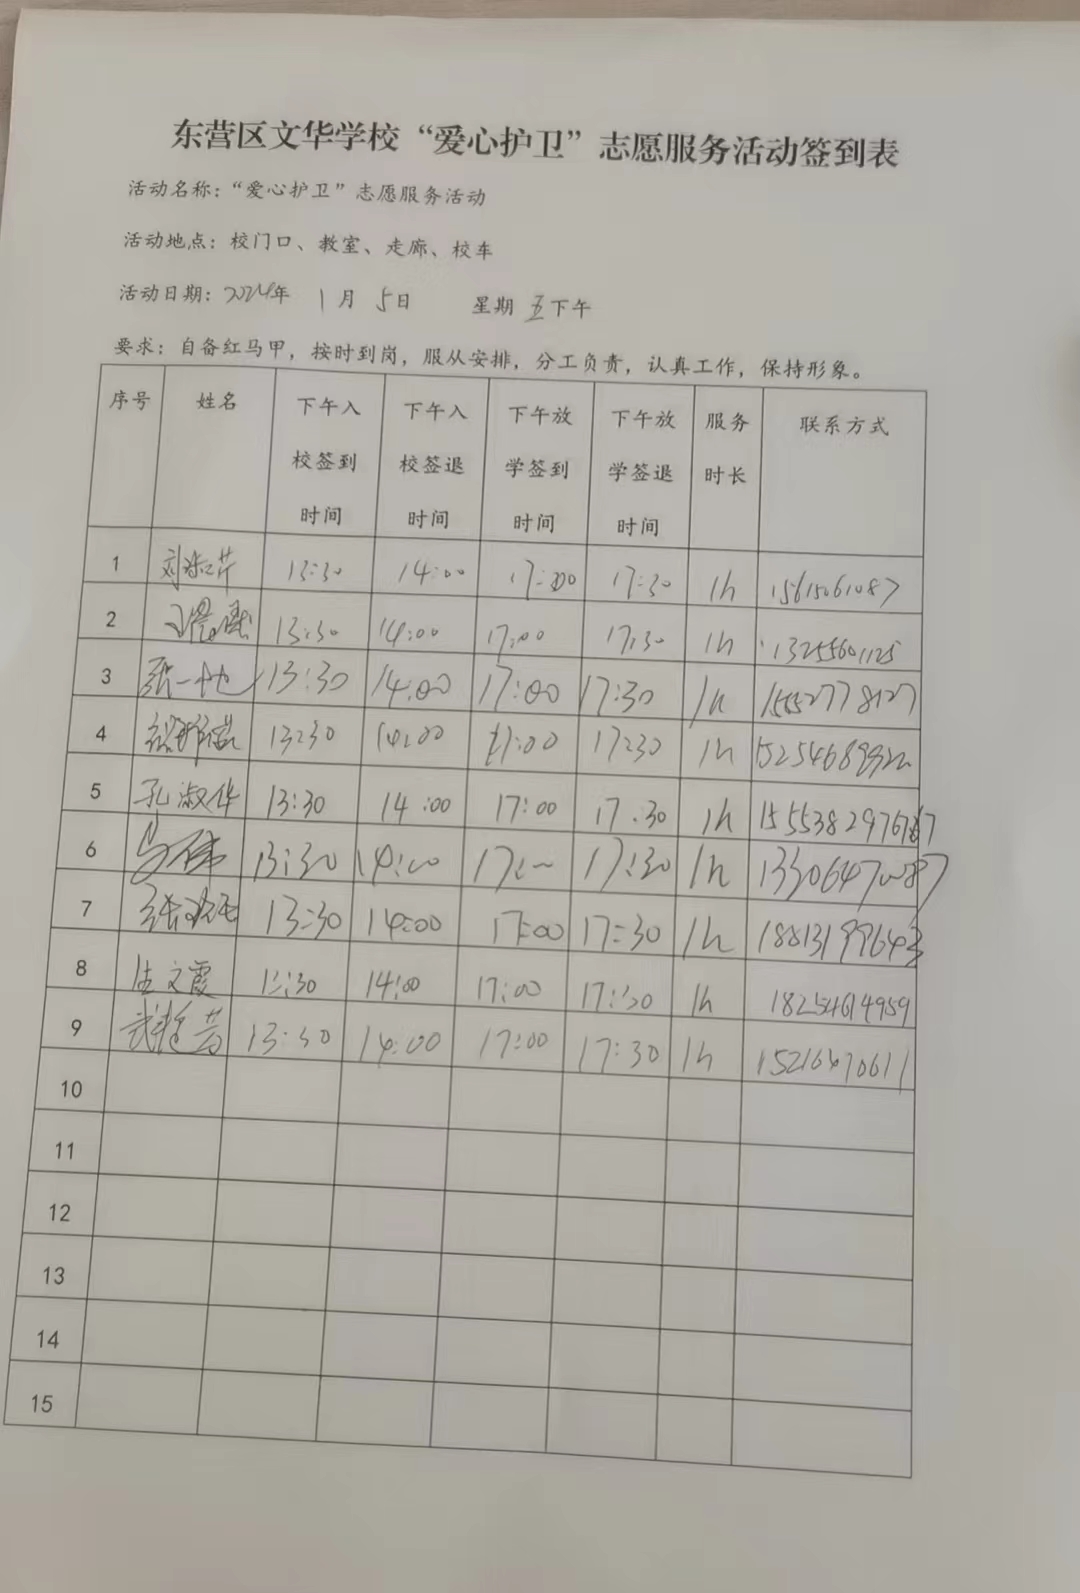 东营区文华学校“爱心护卫”志愿服务活动签到表
活动名称：“爱心护卫”志愿服务活动
活动地点：校门口、教室、走廊、校车
活动日期：2024年 1月 5日 星期五下午
要求：自备红马甲，按时到岗，服从安排，分工负责，认真工作，保持形象。
序号 姓名 下午入校签到时间 下午入校签退时间 下午放学签到时间 下午放学签退时间 服务时长 联系方式
1 13:30 14:00 17:00 17:30 1h 15615061087
2 13:30 14:00 17:00 17:30 1h 13255601125
3 13:30 14:00 17:00 17:30 1h 15552778127
4 13:30 14:00 17:00 17:30 1h
5 孔淑华 13:30 14:00 17:00 17.30 1h
6 马伟 13:30 14:00 17:00 17:30 1h 13306470087
7 13:30 14:00 17:00 17:30 1h 18813199643
8 文霞 13:30 14:00 17:00 17:30 1h 18254614959
9 13:30 14:00 17:00 17:30 1h 15216470611
10
11
12
13
14
15